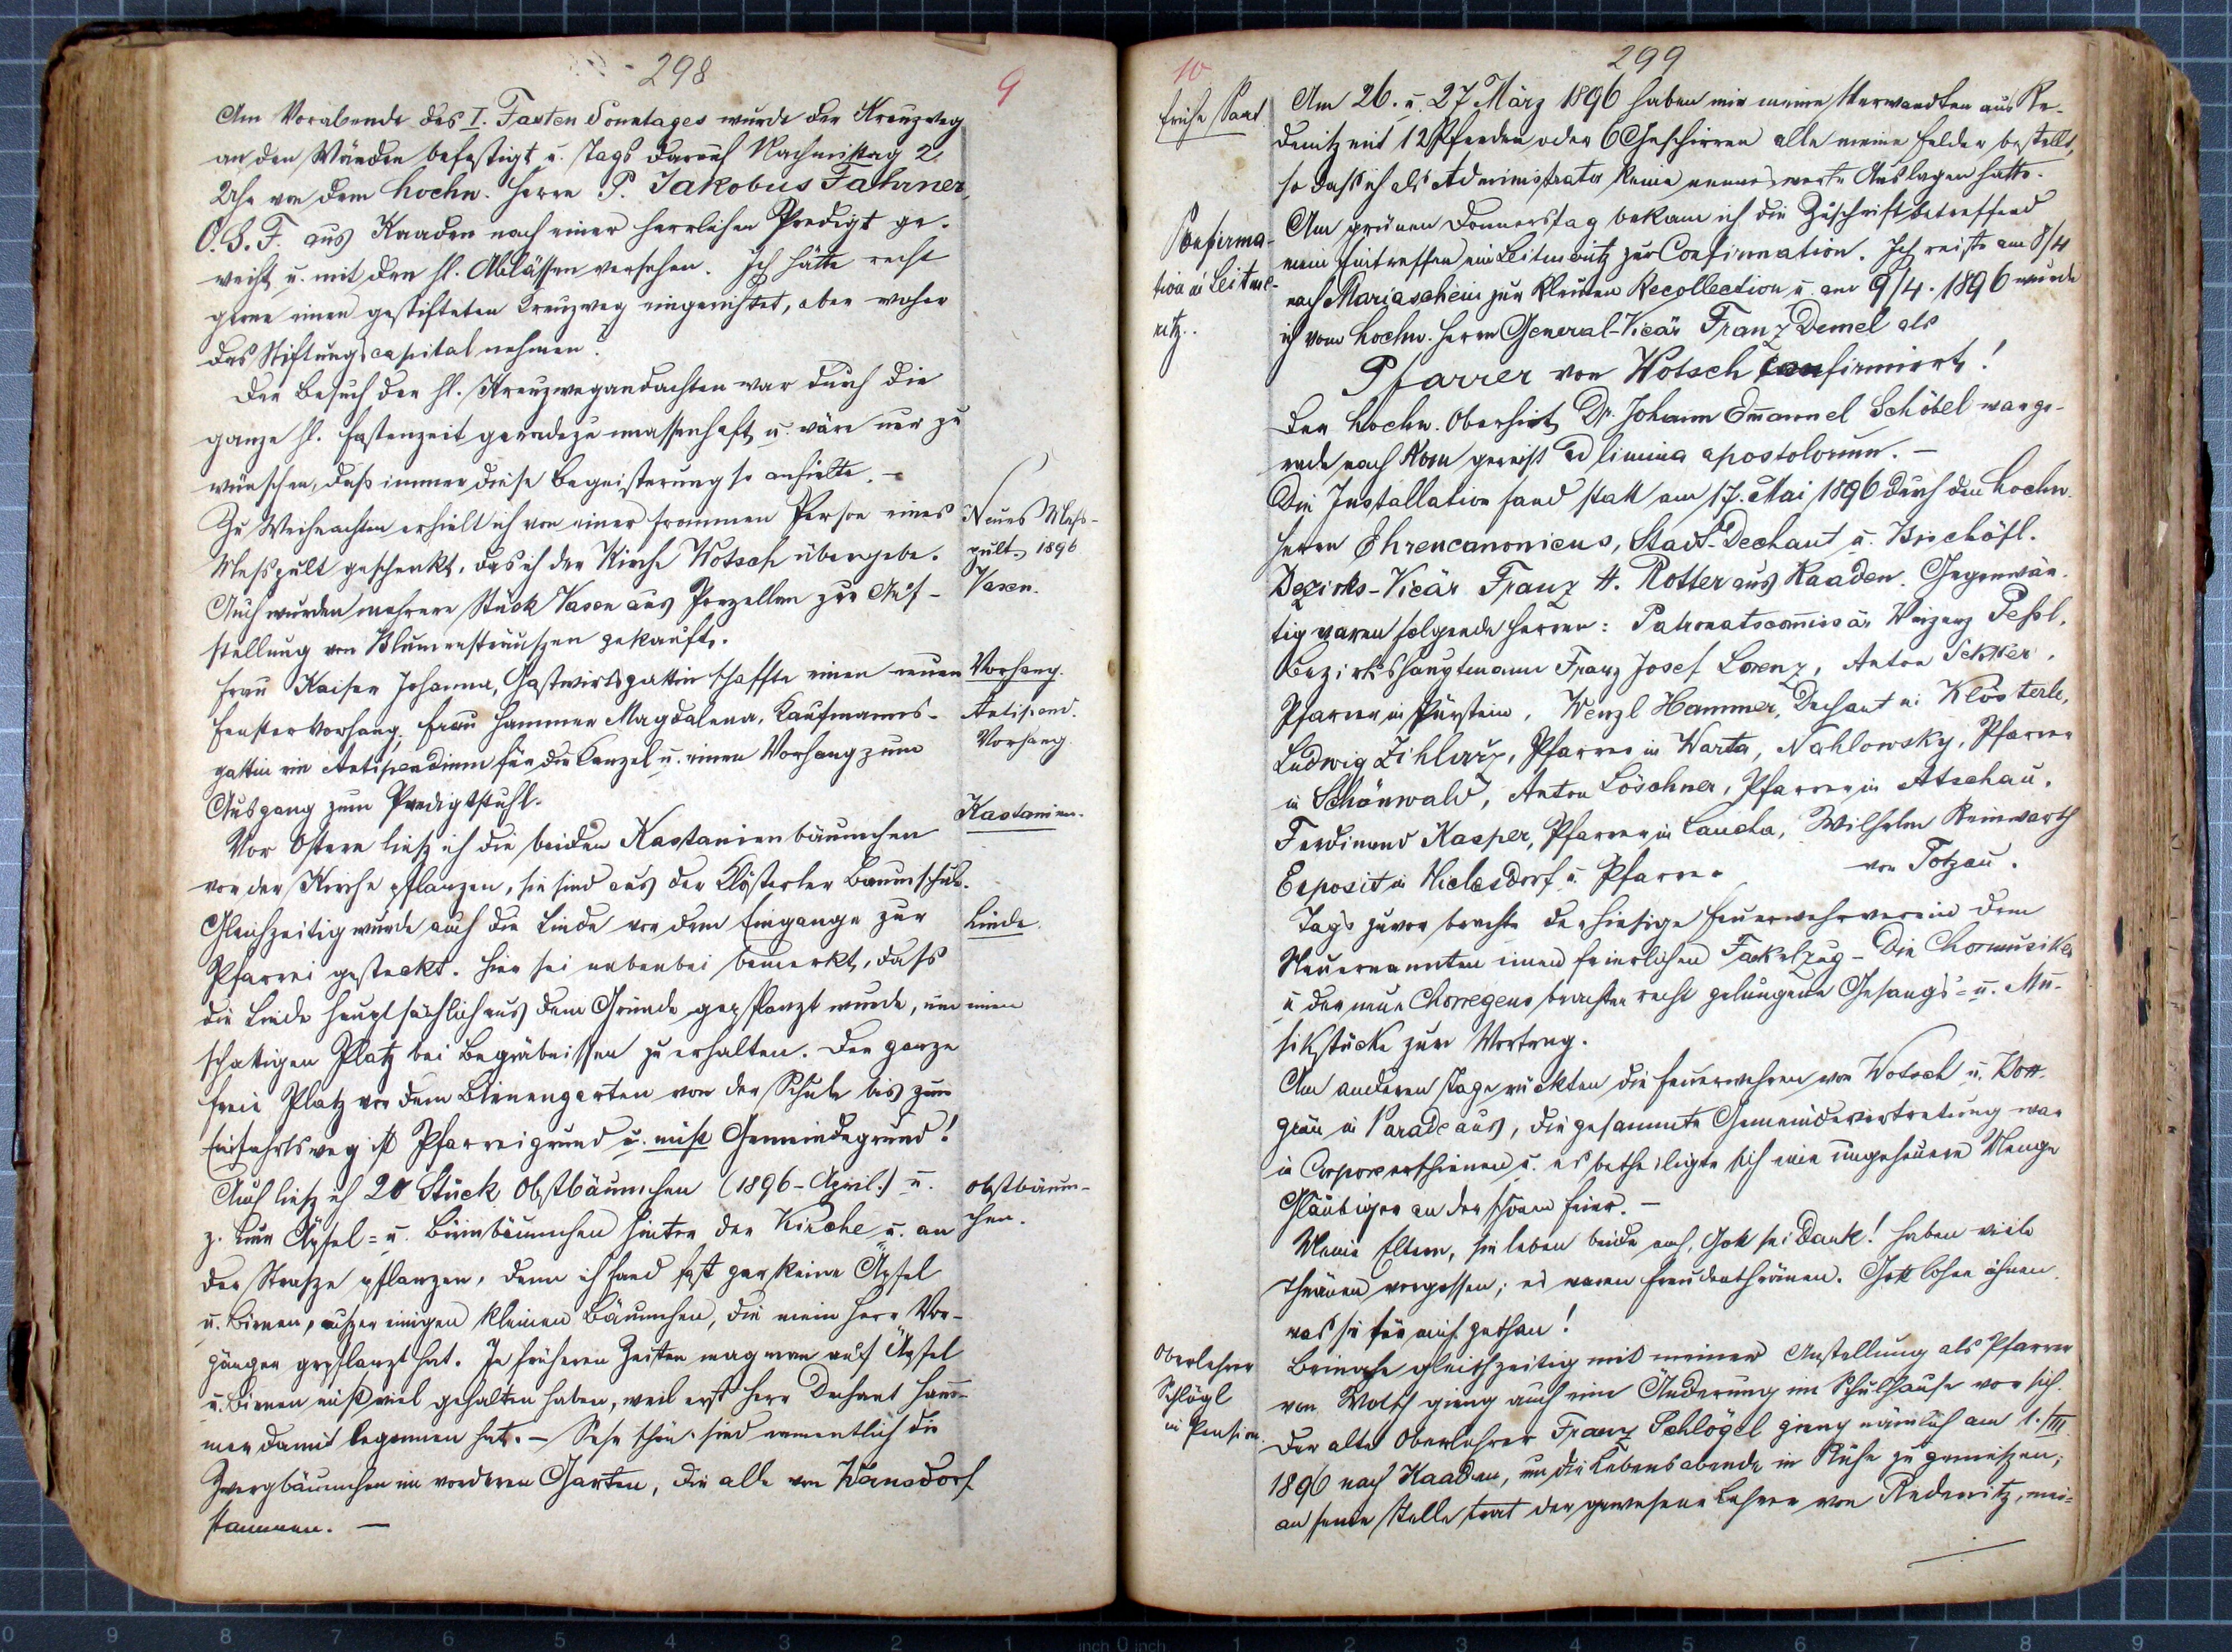 298
9
Am Vorabende des I. Fasten Sonntages wurde der Kreuzweg
an den Wänden befestigt u. Tags darauf Nachmittag 2
Uhr von dem hochw. Herrn P. Jakobus Fahrner,
O.S.F. aus Kaaden nach einer herrlichen Predigt ge-
weiht u. mit den hl. Ablässen versehen. Ich hätte recht
gerne einen gestifteten Kreuzweg eingerichtet, aber woher
das Stiftungscapital nehmen?
Der Besuch der hl. Kreuzwegandachten war durch die
ganze hl. Fastenzeit geradezu massenhaft u. wäre nur zu
wünschen, dass immer diese Begeisterung so anhielte. –
Zu Weihnachten erhielt ich von einer frommen Person eines
Neues Mess-
Messpult geschenkt, das ich der Kirche Wotsch übergebe.
pult, 1896
Auch wurden mehrere Stück Vasen aus Porzellan zur Auf-
Vasen.
stellung von Blumensträuszen gekauft.
Frau Kaiser Johanna, Gastwirtsgattin schaffte einen neuen
Vorhang.
Fenstervorhang, Frau Hammer Magdalena, Kaufmanns-
Antipend.
gattin ein Antipendium für die Kanzel u. einen Vorhang zum
Vorhang
Ausgang zum Predigtstuhl.
Kastanien.
Vor Ostern liesz ich die beiden Kastanienbäumchen
vor der Kirche pflanzen, sie sind aus der Klösterler Baumschule.
Gleichzeitig wurde auch die Linde vor dem Eingange zur
Linde.
Pfarrei gesteckt. Hier sei nebenbei bemerkt, dass
die Linde hauptsächlich aus dem Grunde gepflanzt wurde, um einen
schattigen Platz bei Begräbnissen zu erhalten. Der ganze
freie Platz vor dem Bienengarten von der Schule bis zum
Einfahrtsweg ist Pfarreigrund u. nicht Gemeindegrund!
Auch liesz ich 20 Stück Obstbäumchen (1896 – April.) u.
Obstbäum-
z. nur Äpfel- u. Birnbäumchen hinter der Kirche u. an
chen.
der Strasze pflanzen, denn ich fand fast gar keine Äpfel
u. Birnen, auszer einigen kleinen Bäumchen, die mein Herr Vor-
gänger gepflanzt hat. In früheren Zeiten mag man auf Äpfel
u. Birnen nicht viel gehalten haben, weil erst Herr Dechant Ham-
mer damit begonnen hat. – Sehr schön sind namentlich die
Zwergbäumchen im vorderen Garten, die alle von Wernsdorf
stammen. –
299
10
Frühe Saat
Am 26. u. 27 März 1896 haben mir meine Verwandten aus Re-
denitz mit 12 Pferden oder 6 Geschirren alle meine Felder bestellt,
so dass ich als Administrator keine nennenswerte Auslagen hatte.
Am grünen Donnerstag bekam ich die Zuschrift betreffend
Confirma-
mein Eintreffen in Leitmeritz zur Confirmation. Ich reiste am 8/4
tion in Leitme-
nach Mariaschein zur kleinen Recollection u. am 9/4. 1896 wurde
ritz.
ich vom hochw. Herrn General-Vicär Franz Demel als
Pfarrer von Wotsch confirmiert!
Der hochw. Oberhirt Dr. Johann Emanuel Schöbel war ge-
rade nach Rom gereist ad limina apostolorum. –
Die Installation fand statt am 17. Mai 1896 durch den hochw.
Herrn Ehrencanonicus, Stadt-Dechant u. Bischöfl.
Bezirks-Vicär Franz H. Rotter aus Kaaden. Gegenwär-
tig waren folgende Herren: Patronatscomissär Vinzenz Pessl,
Bezirkshauptmann Franz Josef Lorenz, Anton
Pfarrer in Pürstein, Wenzl Hammer, Dechant in Klösterle,
Ludwig Zihlarz, Pfarrer in Warta, Nahlowsky, Pfarrer
in Schönwald, Anton Löschner, Pfarrer in Atschau,
Ferdinand Kasper, Pfarrer in Laucha, Wilhelm Reinwarth
Exposit in Niclasdorf u. Pfarrer von Totzau.
Tags zuvor brachte der hiesige Feuerwehrverein dem
Neuernannten einen feierlichen Fackelzug – Die Chormusiker
u. der neue Chorregens brachten recht gelungene Gesangs- u. Mu-
sikstücke zum Vortrag.
Am anderen Tage rückten die Feuerwehren von Wotsch u. Wott-
grün in Parade aus, die gesammte Gemeindevertretung war
in Corpore erschienen u. es betheiligte sich eine ungeheuere Menge
Gläubiger an der schönen Feier. –
Meine Eltern, sie leben beide noch, Gott sei Dank! haben viele
Thränen vergossen; es waren Freudenthränen. Gott lohne ihnen,
was sie für mich gethan!
Oberlehrer
Beinahe gleichzeitig mit meiner Anstellung als Pfarrer
Schlögl
von Wotsch gieng auch eine Änderung im Schulhause vor sich.
in Pension.
Der alte Oberlehrer Franz Schlögel gieng nämlich am 1./III
1896 nach Kaaden, um die Lebensabende in Ruhe zu genieszen;
an seine Stelle trat der gewesene Lehrer von Redenitz, mei-